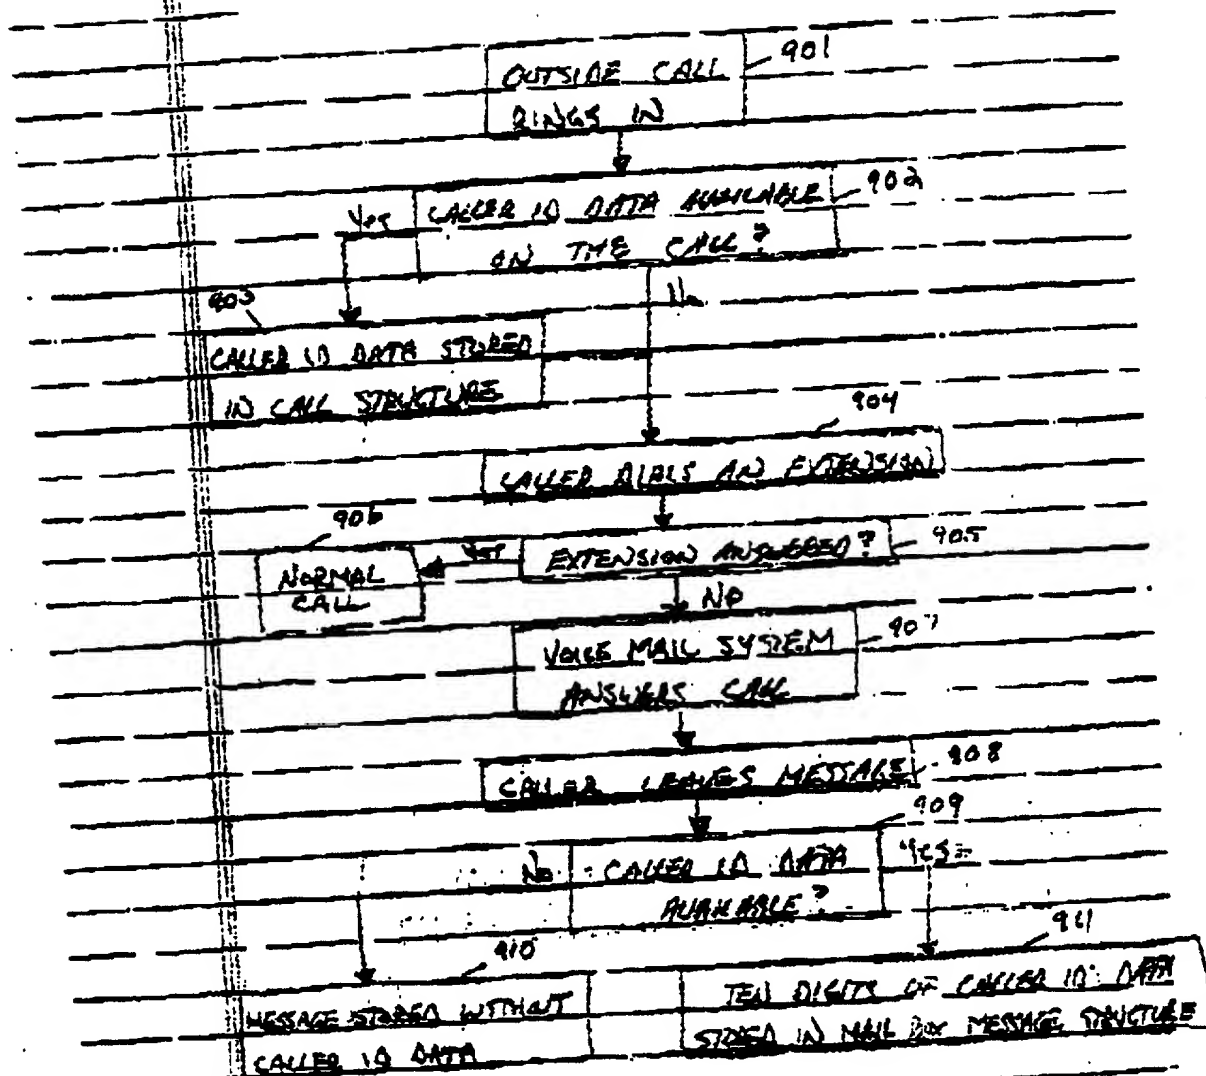 OUTSIDE CALL
RINGS IN
901
CALLER ID DATA AVAILABLE
ON THE CALL?
902
Yes
No
903
CALLER ID DATA STORED
IN CALL STRUCTURE
904
CALLER DIALS AN EXTENSION
EXTENSION ANSWERED?
905
Yes
906
NORMAL
CALL
NO
VOICE MAIL SYSTEM
ANSWERS CALL
907
CALLER LEAVES MESSAGE
908
909
CALLER ID DATA
AVAILABLE?
No
Yes
910
MESSAGE STORED WITHOUT
CALLER ID DATA
911
TEN DIGITS OF CALLER ID DATA
STORED IN MAIL BOX MESSAGE STRUCTURE